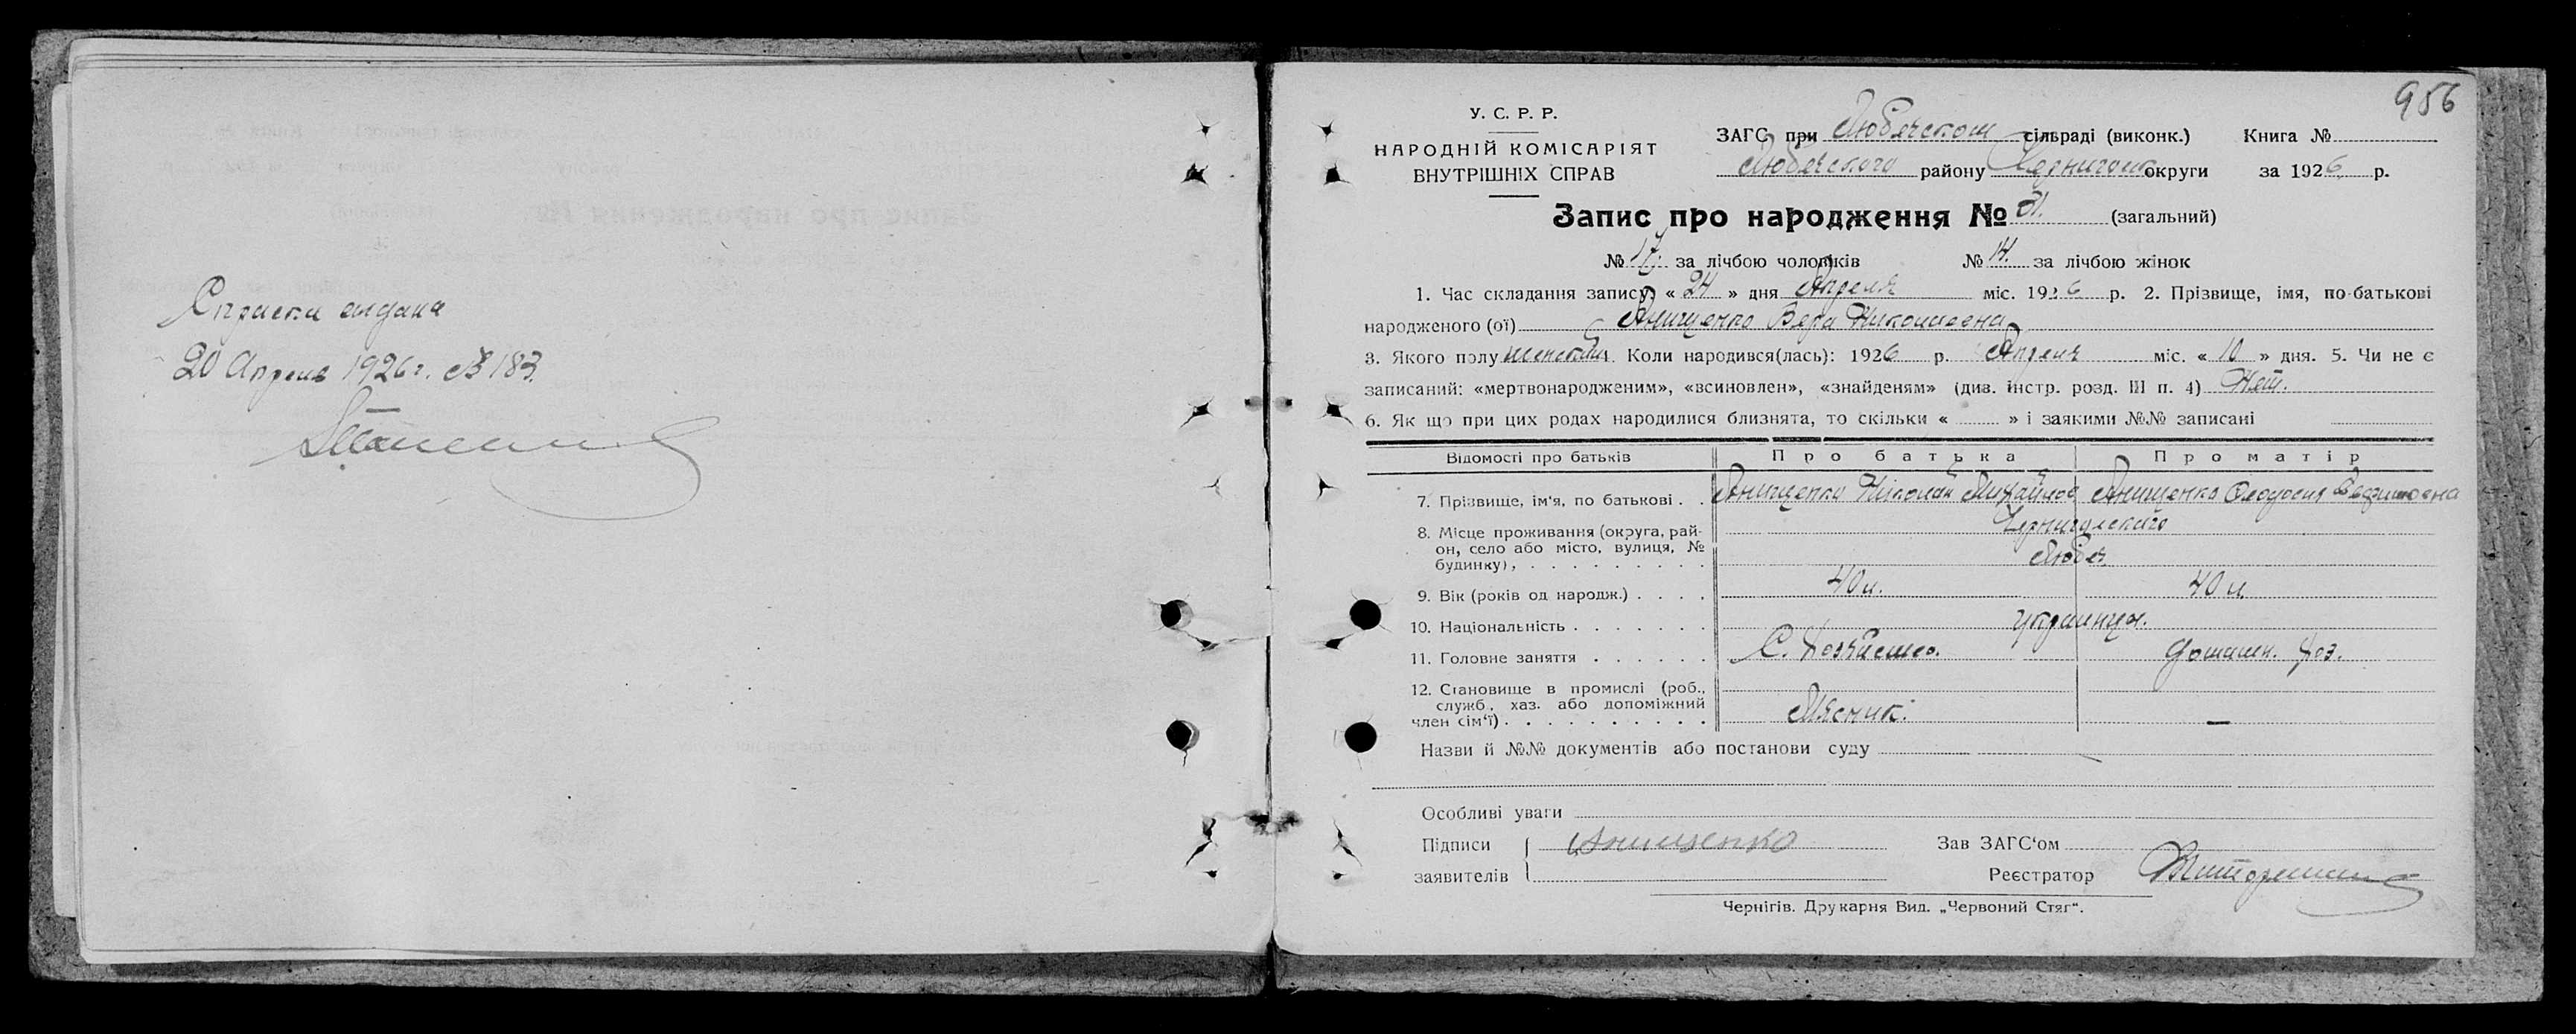 Справка выдана
20 Апреля 1926 г. № 183.
956
У. С. Р. Р.
НАРОДНІЙ КОМІСАРІЯТ
ВНУТРІШНІХ СПРАВ
ЗАГС при Любечском сільраді (виконк.) Книга №
Любечского району Чернигов округи за 1926 р.
Запис про народження № 31. (загальний)
№ 17. за лічбою чоловіків № 14. за лічбою жінок
1. Час складання запису: « 24 » дня Апреля міс. 1926 р. 2. Прізвище, імя, по-батькові
народженого (ої) Анищенко Вера Николаевна
3. Якого полу женский. Коли народився(лась): 1926 р. Апреля міс. « 10 » дня. 5. Чи не є
записаний: «мертвонародженим», «всиновлен», «знайденям» (див. інстр. розд. III п. 4) Нет.
6. Як що при цих родах народилися близнята, то скільки « » і заякими №№ записані
Відомості про батьків Про батька Про матір
7. Прізвище, ім'я, по батькові . . Анищенко Николай Михайлов Анищенко Феодосия
8. Місце проживання (округа, рай-
он, село або місто, вулиця, №
будинку), . . . . . . . . .
Черниговского
Любеч
9. Вік (років од народж.) . . . . 40 л. 40 л.
10. Національність . . . . . . . украинцы.
11. Головне заняття . . . . . . С. Хозяйство. домашн. хоз.
12. Становище в промислі (роб.,
служб., хаз. або допоміжний
член сім'ї) . . . . . . . . . Мясник. —
Назви й №№ документів або постанови суду
Особливі уваги
Підписи Анищенко Зав ЗАГС'ом
заявителів Реєстратор
Чернігів. Друкарня Вид. „Червоний Стяг“.